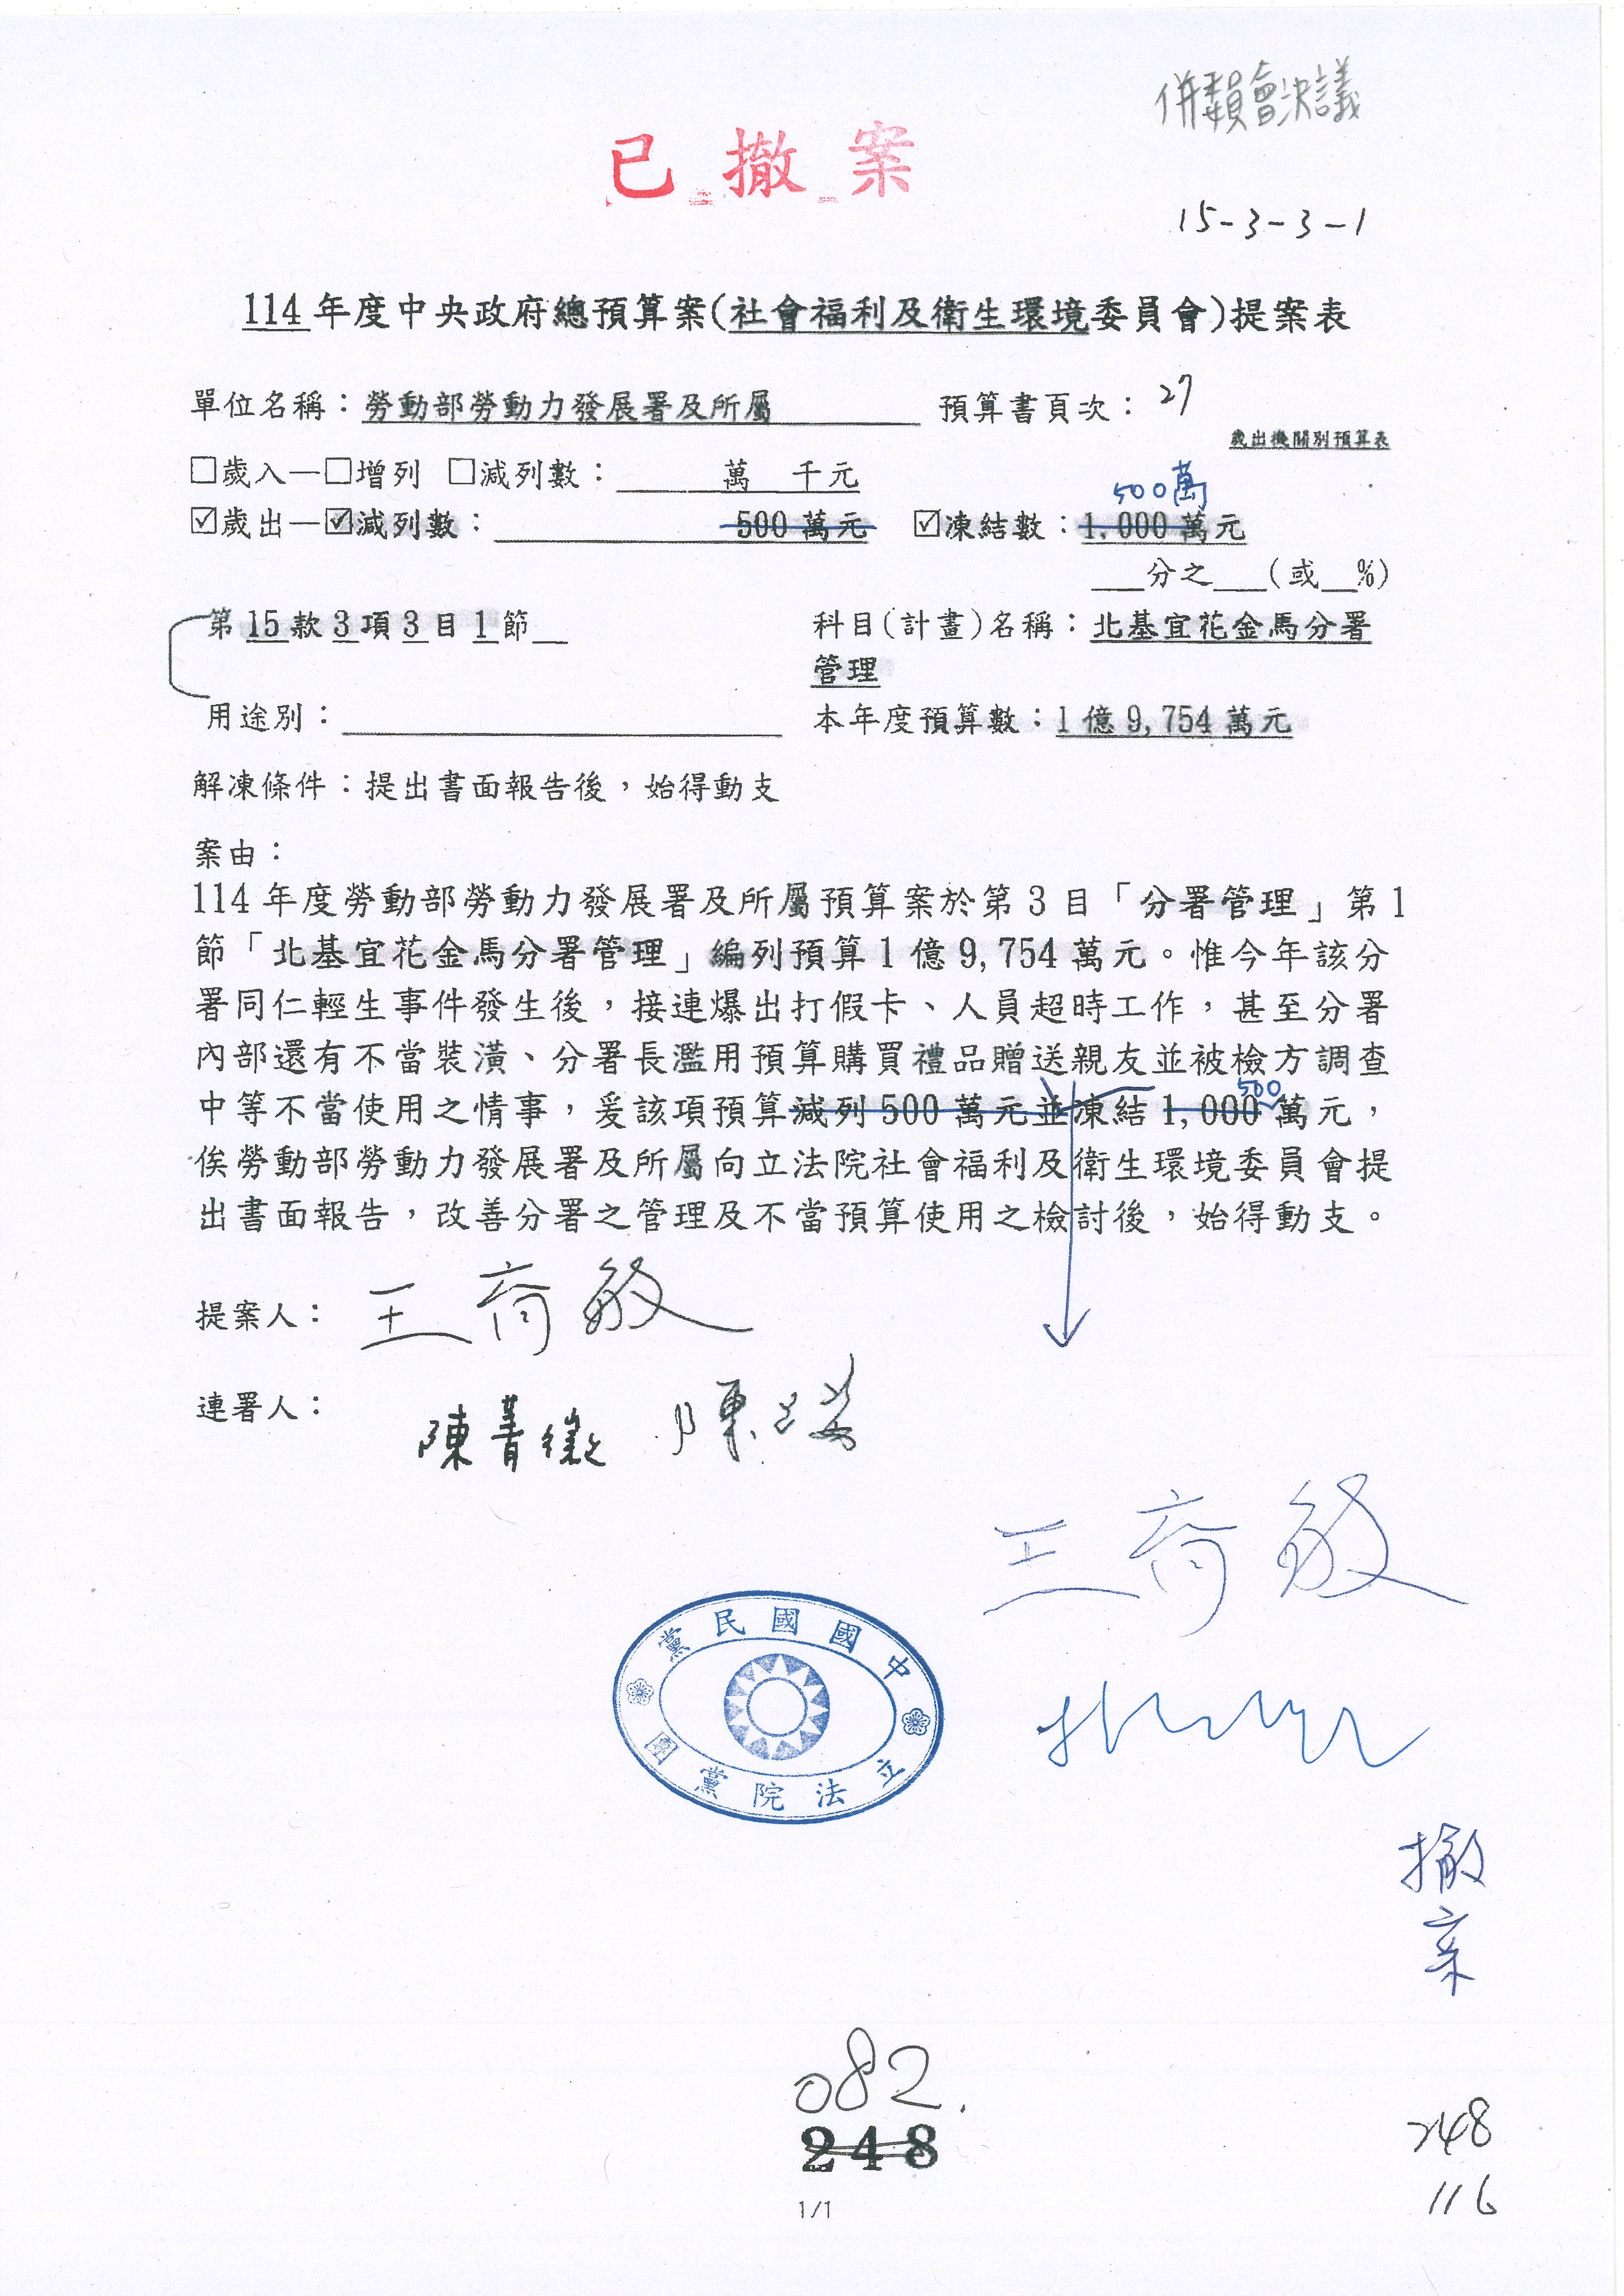 併委員會決議
已撤案
15-3-3-1
114年度中央政府總預算案(社會福利及衛生環境委員會)提案表
單位名稱：勞動部勞動力發展署及所屬 預算書頁次：27
歲出機關別預算表
□歲入—□增列 □減列數： 萬 千元
500萬
☑歲出—☑減列數： 500萬元 ☑凍結數：1,000萬元
__分之__(或__%)
第15款3項3目1節__ 科目(計畫)名稱：北基宜花金馬分署
管理
用途別： 本年度預算數：1億9,754萬元
解凍條件：提出書面報告後，始得動支
案由：
114年度勞動部勞動力發展署及所屬預算案於第3目「分署管理」第1
節「北基宜花金馬分署管理」編列預算1億9,754萬元。惟今年該分
署同仁輕生事件發生後，接連爆出打假卡、人員超時工作，甚至分署
內部還有不當裝潢、分署長濫用預算購買禮品贈送親友並被檢方調查
500
中等不當使用之情事，爰該項預算減列500萬元並凍結1,000萬元，
俟勞動部勞動力發展署及所屬向立法院社會福利及衛生環境委員會提
出書面報告，改善分署之管理及不當預算使用之檢討後，始得動支。
提案人：王育敏
連署人：陳菁徽
王育敏
中國國民黨
立法院黨團
撤案
082.
248
248
116
1/1